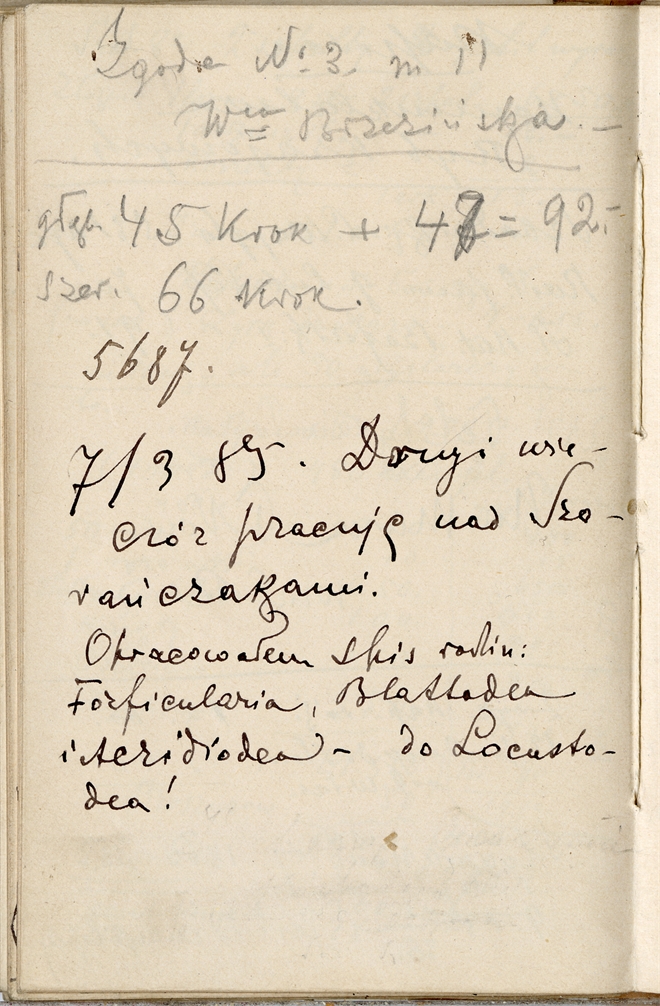 Zgoda № 3. m 11
Wna Brzezińska. —
głęb. 45 Krok + 47 = 92.-
szer. 66 Krok.
5687.
7/3 85. Drugi wie-
czór pracuję nad Sza-
rańczakami.
Opracowałem spis rodzin:
Forficularia, Blattodea
i Acridiodea - do Locusto-
dea!